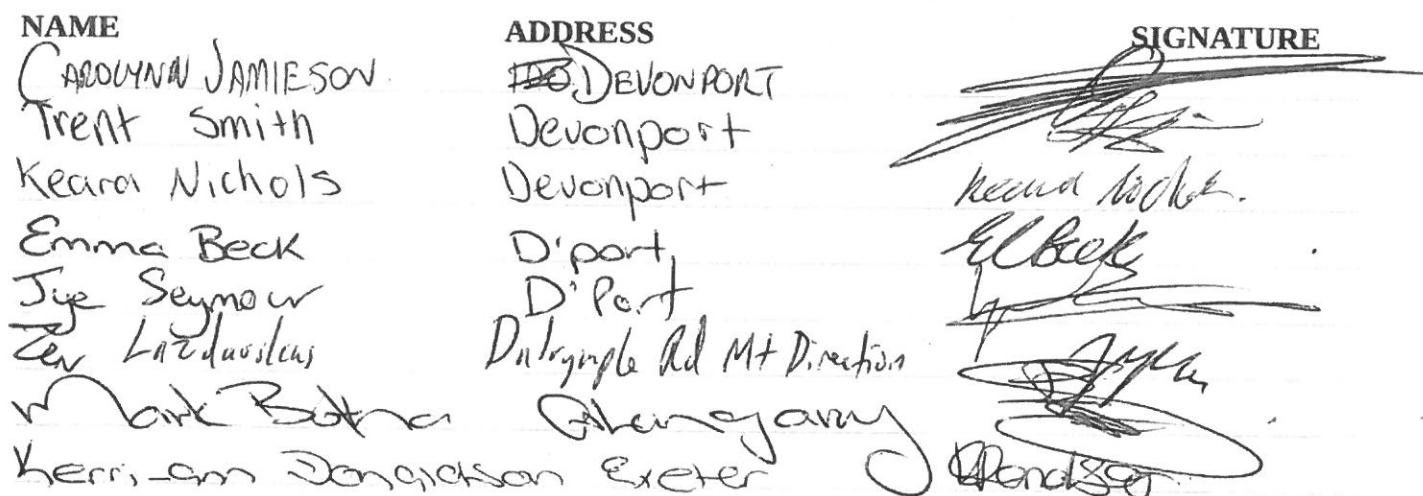 NAME ADDRESS SIGNATURE
CAROLYNN JAMIESON DEVONPORT
Trent Smith Devonport
Keara Nichols Devonport Keara Nichols.
Emma Beck D'port, E Beck
Jye Seymour D'Port
Zen Dalrymple Rd Mt Direction
Mark Botha Glengarry
Kerri-ann Donaldson Exeter